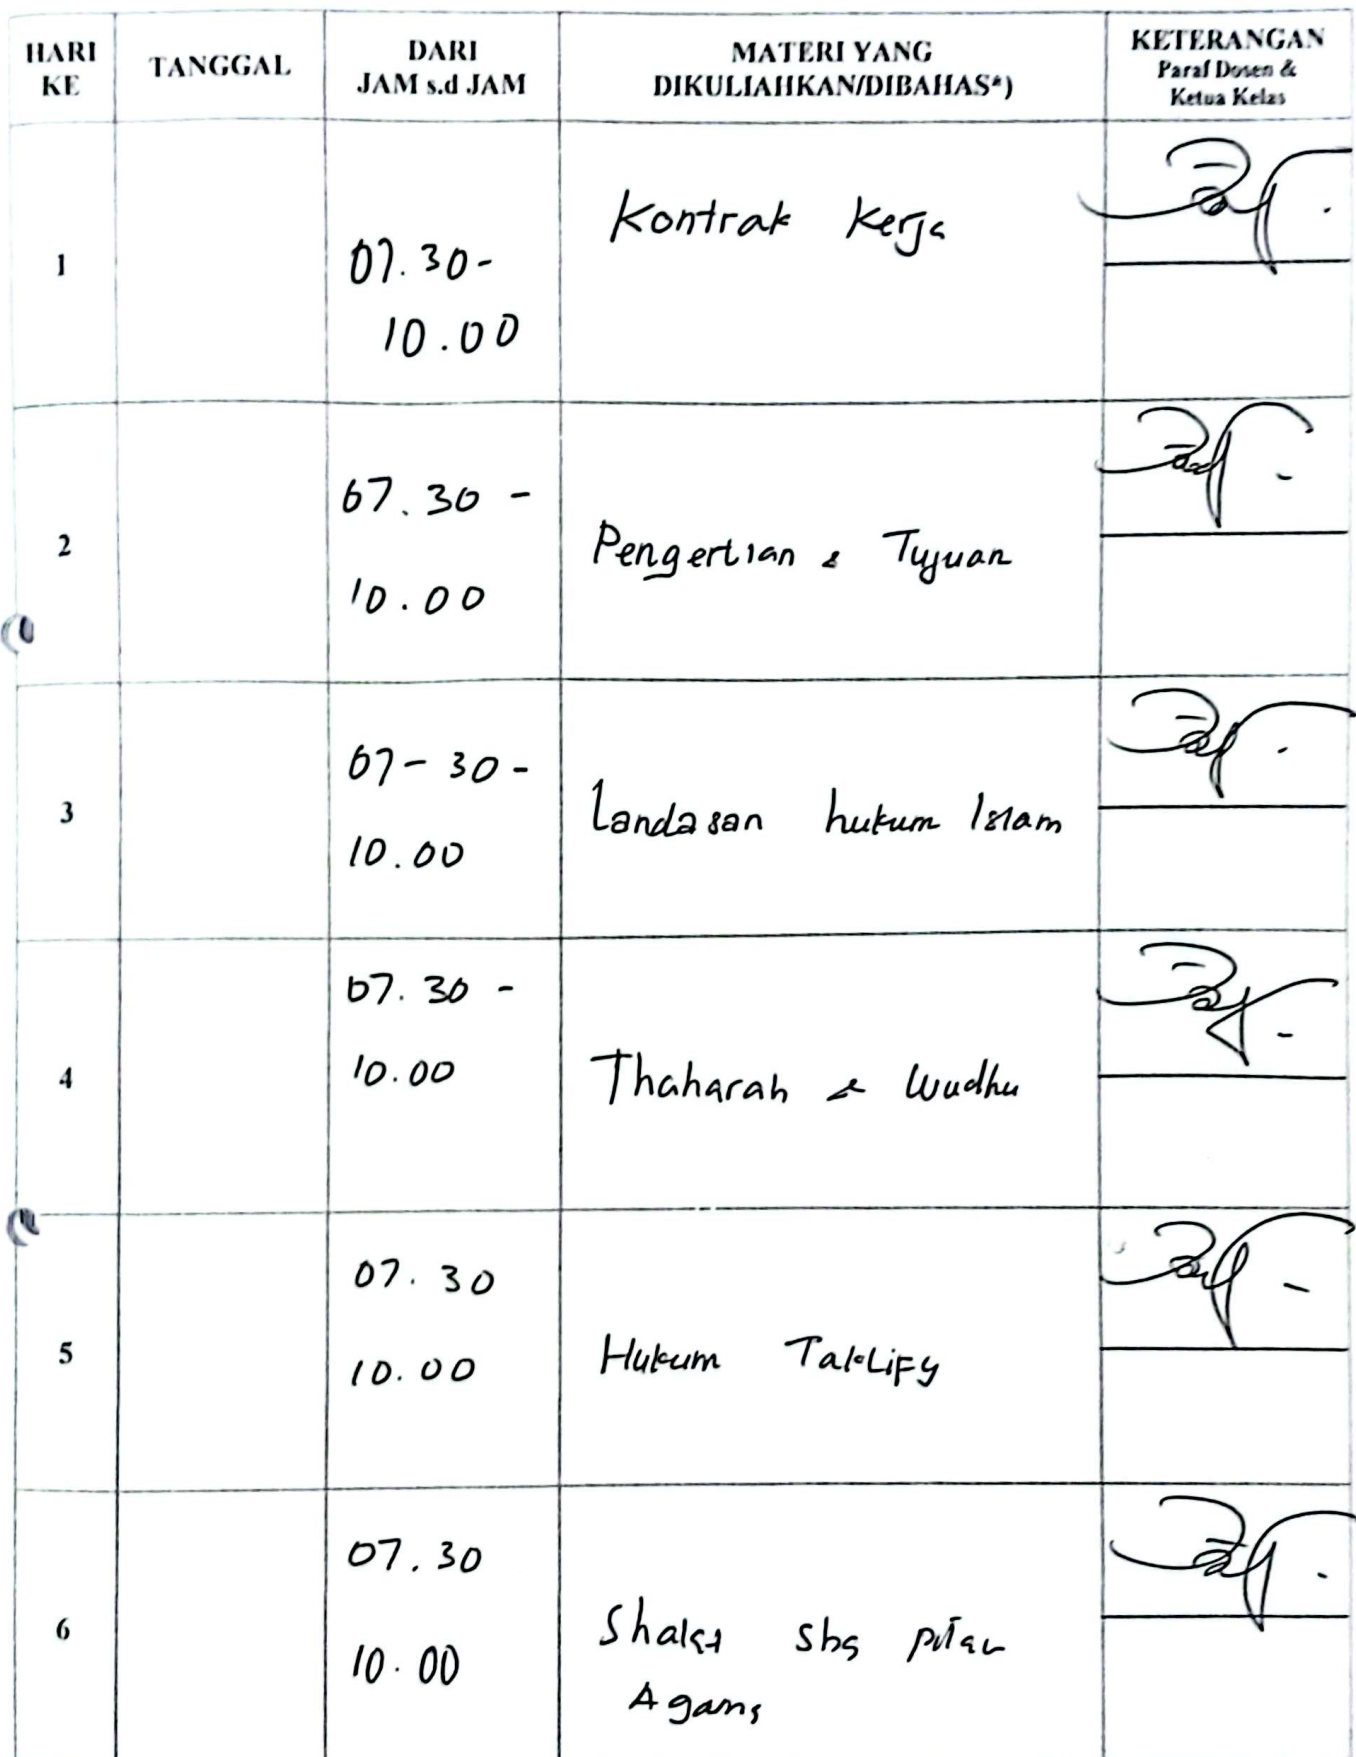 HARI KE
TANGGAL
DARI
JAM s.d JAM
MATERI YANG
DIKULIAHKAN/DIBAHAS*)
KETERANGAN
Paraf Dosen &
Ketua Kelas
1
07.30-
10.00
Kontrak Kerja
2
07.30 -
10.00
Pengertian & Tujuan
3
07-30-
10.00
Landasan hukum Islam
4
07.30 -
10.00
Thaharah & Wudhu
5
07.30
10.00
Hukum Taklify
6
07.30
10.00
Shalat sbg
Agama